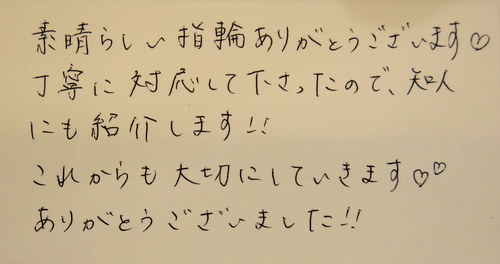 素晴らしい指輪ありがとうございます♡
丁寧に対応して下さったので、知人
にも紹介します!!
これからも大切にしていきます♡♡
ありがとうございました!!